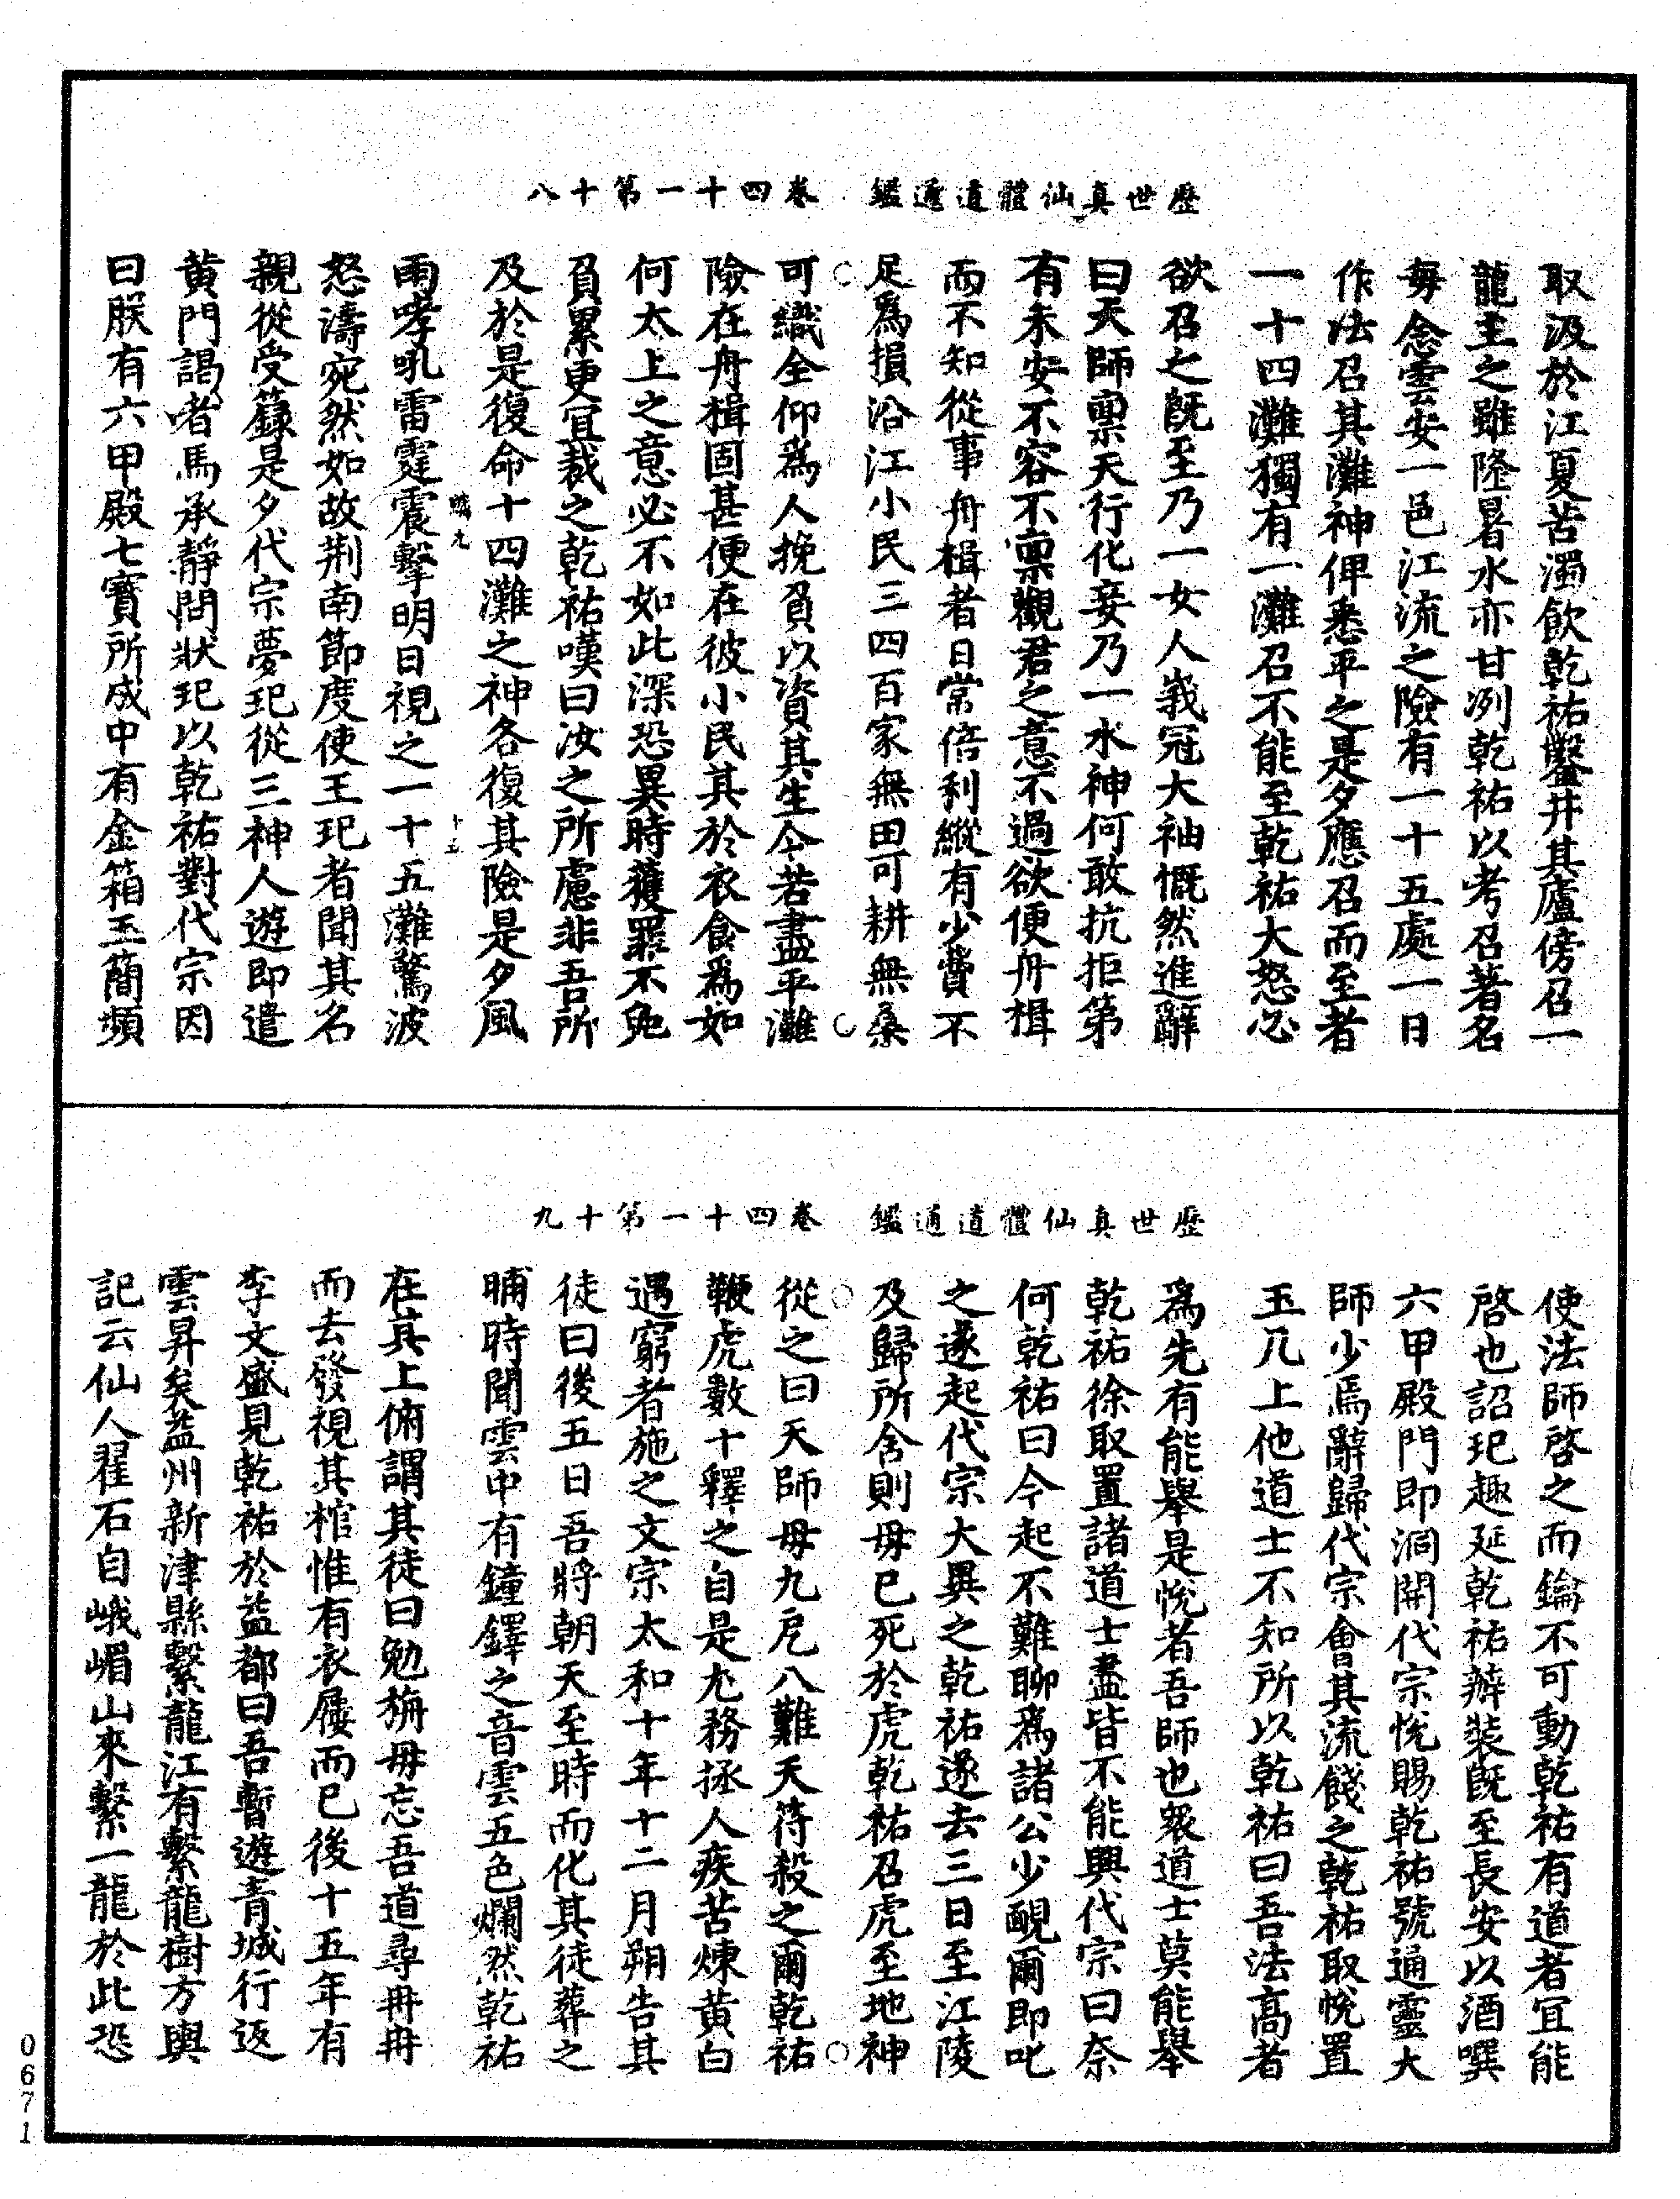 歷世真仙體道通鑑　卷四十一第十八
取汲於江夏苦濁飲乾祐鑿井其廬傍召一
龍主之雖隆暑水亦甘冽乾祐以考召著名
每念雲安一邑江流之險有一十五處一日
作法召其灘神俾悉平之是夕應召而至者
一十四灘獨有一灘召不能至乾祐大怒必
欲召之旣至乃一女人峩冠大袖慨然進辭
曰天師禀天行化妾乃一水神何敢抗拒第
有未安不容不禀觀君之意不過欲便舟楫
而不知從事舟楫者日常倍利縱有少費不
足爲損沿江小民三四百家無田可耕無桑
可織全仰爲人挽負以資其生今若盡平灘
險在舟楫固甚便在彼小民其於衣食爲如
何太上之意必不如此深恐異時獲罪不免
負累更宜裁之乾祐嘆曰汝之所慮非吾所
及於是復命十四灘之神各復其險是夕風
雨哮吼雷霆震擊明日視之一十五灘驚波
怒濤宛然如故荆南節度使王玘者聞其名
親從受籙是夕代宗夢玘從三神人遊即遣
黃門謁者馬承靜問狀玘以乾祐對代宗因
曰朕有六甲殿七寶所成中有金箱玉蕑頻
歷世真仙體道通鑑　卷四十一第十九
使法師啓之而鑰不可動乾祐有道者宜能
啓也詔玘趣延乾祐辦裝旣至長安以酒噀
六甲殿門即洞開代宗悅賜乾祐號通靈大
師少焉辭歸代宗會其流餞之乾祐取帨置
玉几上他道士不知所以乾祐曰吾法高者
爲先有能舉是帨者吾師也衆道士莫能舉
乾祐徐取置諸道士盡皆不能興代宗曰奈
何乾祐曰今起不難聊爲諸公少靦爾即叱
之遂起代宗大異之乾祐遂去三日至江陵
及歸所舍則毋已死於虎乾祐召虎至地神
從之曰天師毋九戹八難天符殺之爾乾祐
鞭虎數十釋之自是尤務拯人疾苦煉黃白
遇窮者施之文宗太和十年十二月朔告其
徒曰後五日吾將朝天至時而化其徒葬之
晡時聞雲中有鐘鐸之音雲五色爛然乾祐
在其上俯謂其徒曰勉旃毋忘吾道尋冉冉
而去發視其棺惟有衣屨而已後十五年有
李文盛見乾祐於益都曰吾暫遊青城行返
雲昇矣益州新津縣繫龍江有繫龍樹方輿
記云仙人翟石自峨嵋山來繫一龍於此恐
0671